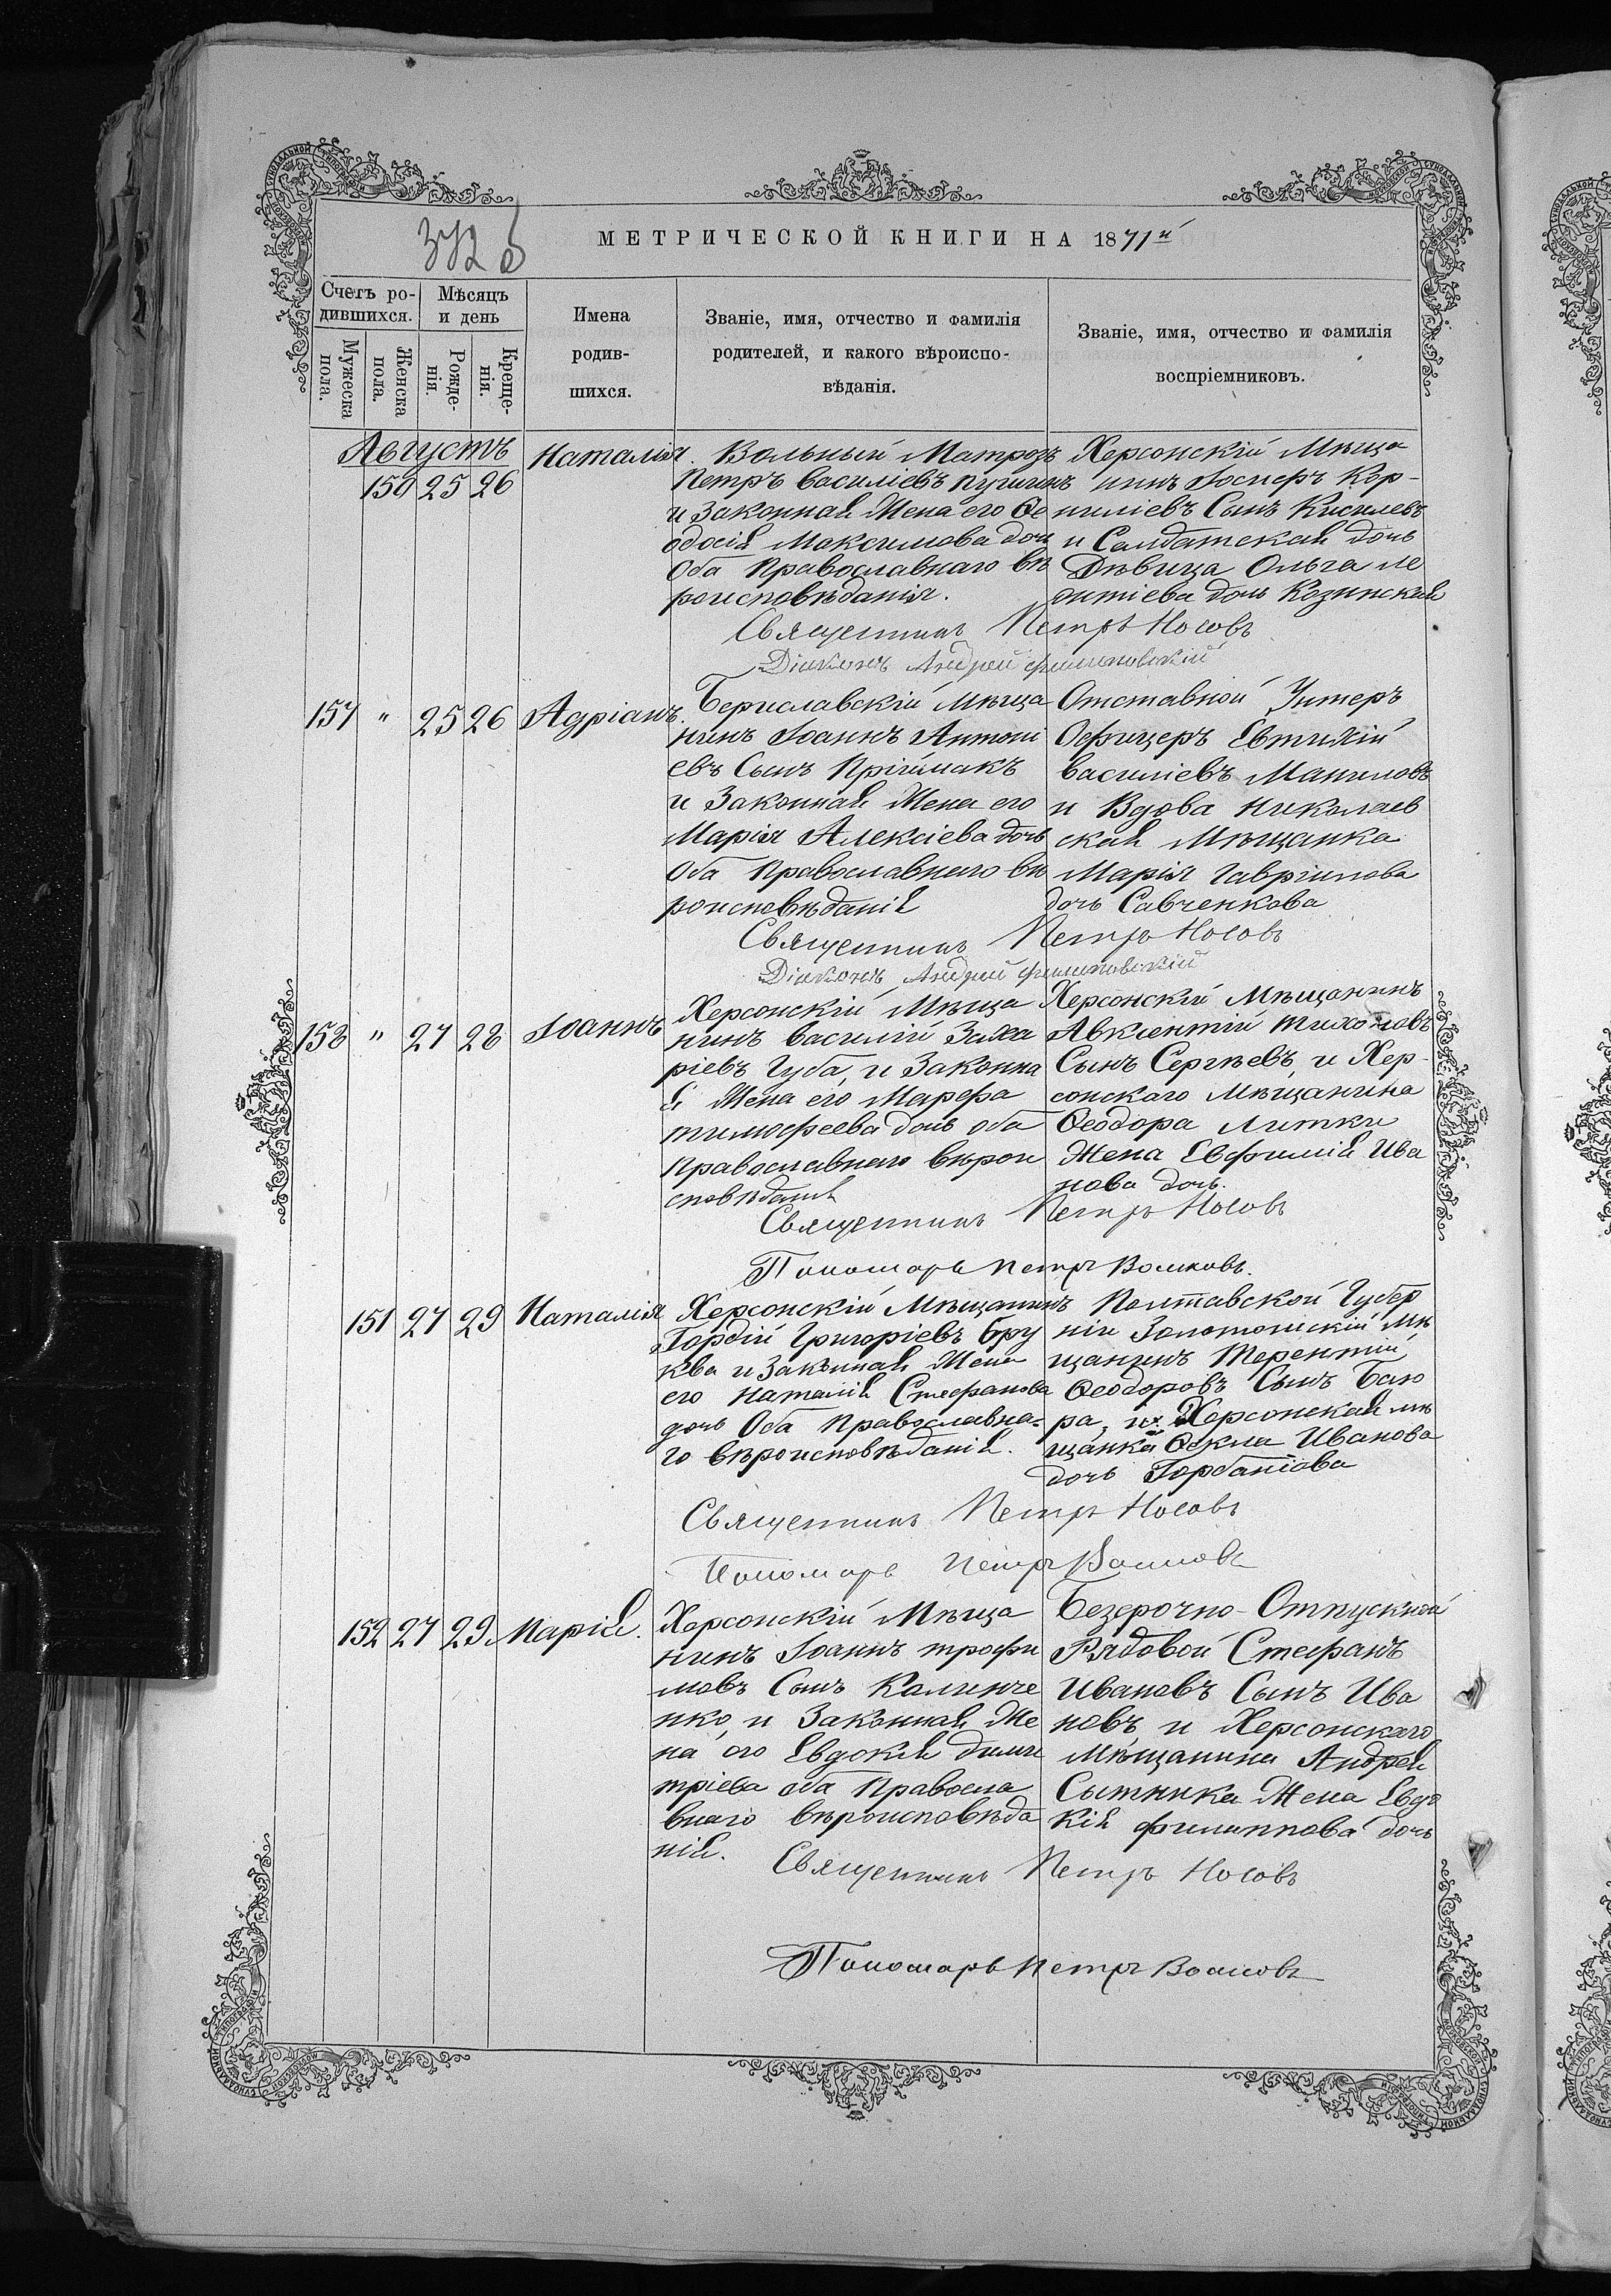 МЕТРИЧЕСКОЙ КНИГИ НА 1871й
Счетъ ро-
дившихся.
Мѣсяцъ
и день
Мужеска пола.
Женска пола.
Рожде-
нія.
Креще-
нія.
Имена
родив-
шихся.
Званіе, имя, отчество и фамилія
родителей, и какого вѣроиспо-
вѣданія.
Званіе, имя, отчество и фамилія
воспріемниковъ.
Августъ
150 25 26
Наталія.
Вольный Матрозъ
Петръ Василіевъ
и Законная Жена его Ѳе
одосія Максимова доч
Оба Православнаго вѣ
роисповѣданія.
Херсонскій Мѣща
нинъ Іосифъ Кор-
ниліевъ Сынъ Киселевъ
и Солдатская дочь
Дѣвица Ольга Ле
онтіева дочь Козинская
Священникъ Петръ Носовъ
Діаконъ Андрей Филиповскій
157 " 25 26
Адріанъ.
Бериславскій Мѣща
нинъ Іоаннъ Антоні
евъ Сынъ Пріймакъ
и Законная Жена его
Марія Алексіева дочь
Оба Православнаго вѣ
роисповѣданія
Отставной Унтеръ
Офицеръ Евтихій
Василіевъ Маниловъ
и Вдова Николаев
ская Мѣщанка
Марія Гавріилова
дочь Савченкова
Священникъ Петръ Носовъ
Діаконъ Андрей Филиповскій
158 " 27 28
Іоаннъ
Херсонскій Мѣща
нинъ Василій Заха
ріевъ Губа, и Законна
я Жена его Марфа
Тимофеева дочь оба
Православнаго вѣрои
сповѣданія
Херсонскій Мѣщанинъ
Авксентій Тихоновъ
Сынъ Сергѣевъ, и Хер-
сонскаго Мѣщанина
Ѳеодора Литки
Жена Евфимія Ива
нова дочь.
Священникъ Петръ Носовъ
Пономарь Петръ Волковъ.
151 27 29
Наталія
Херсонскій Мѣщанинъ
Гордій Григоріевъ Бру
ква и Законная Жена
его Наталія Стефанова
дочь Оба Православна-
го вѣроисповѣданія.
Полтавской Губер
ніи Золотоношскій Мѣ
щанинъ Терентій
Ѳеодоровъ Сынъ Баю
ра, и Херсонская мѣ
щанка Ѳекла Иванова
дочь Горбаніова
Священникъ Петръ Носовъ
Пономарь Петръ Волковъ
152 27 29
Марія.
Херсонскій Мѣща
нинъ Іоаннъ Трофи
мовъ Сынъ Калинче
нко, и Законная Же
на его Евдокія Дими
тріева оба Правосла
внаго вѣроисповѣда
нія.
Безсрочно-Отпускной
Рядовой Стефанъ
Ивановъ Сынъ Ива
новъ, и Херсонскаго
Мѣщанина Андрея
Сытника Жена Евдо
кія Филиппова дочь
Священникъ Петръ Носовъ
Пономарь Петръ Волковъ